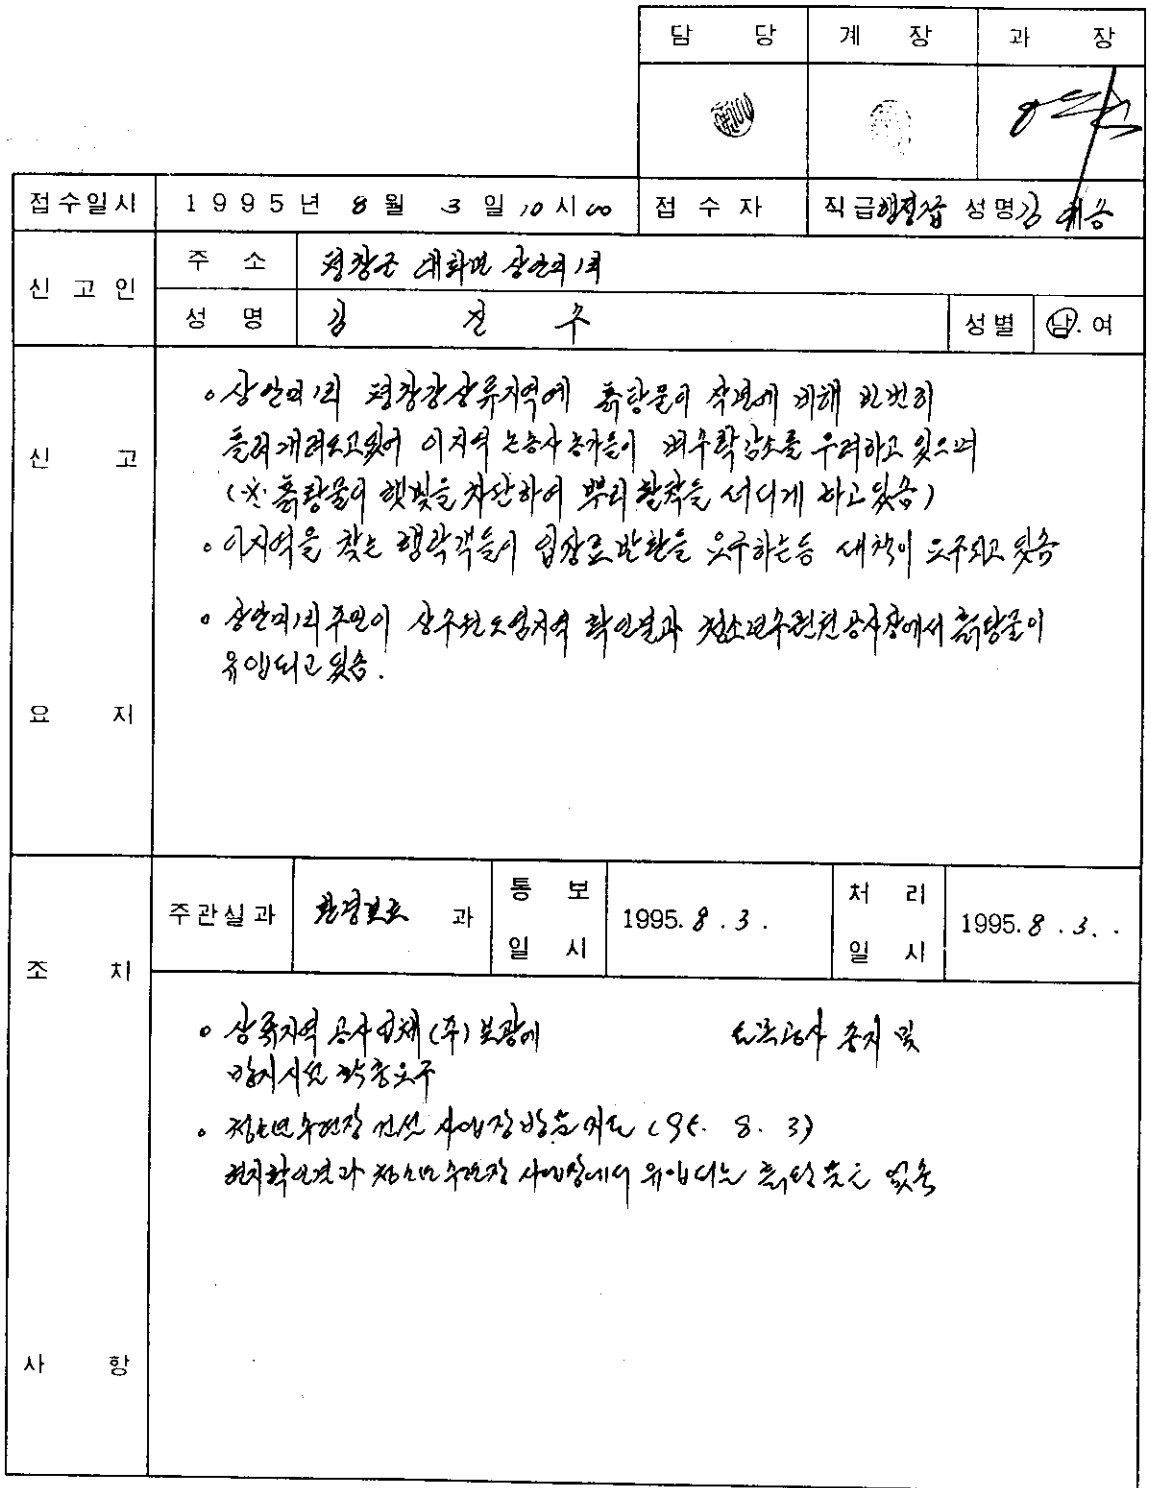 담 당 계 장 과 장
접수일시 1995년 8월 3일 10시 00 접 수 자 직급 성명 김
신 고 인 주 소 평창군 대화면 상안미1리
성 명 김 진 수 성별 남.여
신 고 요 지
◦ 상안미1리 평창강상류지역에 흙탕물이 작년에 비해 빈번히
흘러내려오고있어 이지역 논농사 농가들이 벼수확감소를 우려하고 있으며
(※ 흙탕물이 햇빛을 차단하여 뿌리 활착을 더디게 하고있음)
◦ 이지역을 찾는 행락객들이 입장료반환을 요구하는등 대책이 요구되고 있음
◦ 상안미1리주민이 상수원오염지역 확인결과 청소년수련원공사장에서 흙탕물이
유입되고있음.
조 치 사 항
주관실과 환경보호 과 통 보 일 시 1995. 8 . 3 . 처 리 일 시 1995. 8 . 3 . .
◦ 상류지역 공사업체 (주) 보광에 공사 중지 및
방지시설 확충요구
◦ 청소년수련장 건설 사업장 방문 지도 (95. 8. 3)
현지확인결과 청소년수련장 사업장에서 유입되는 흙탕물은 없음